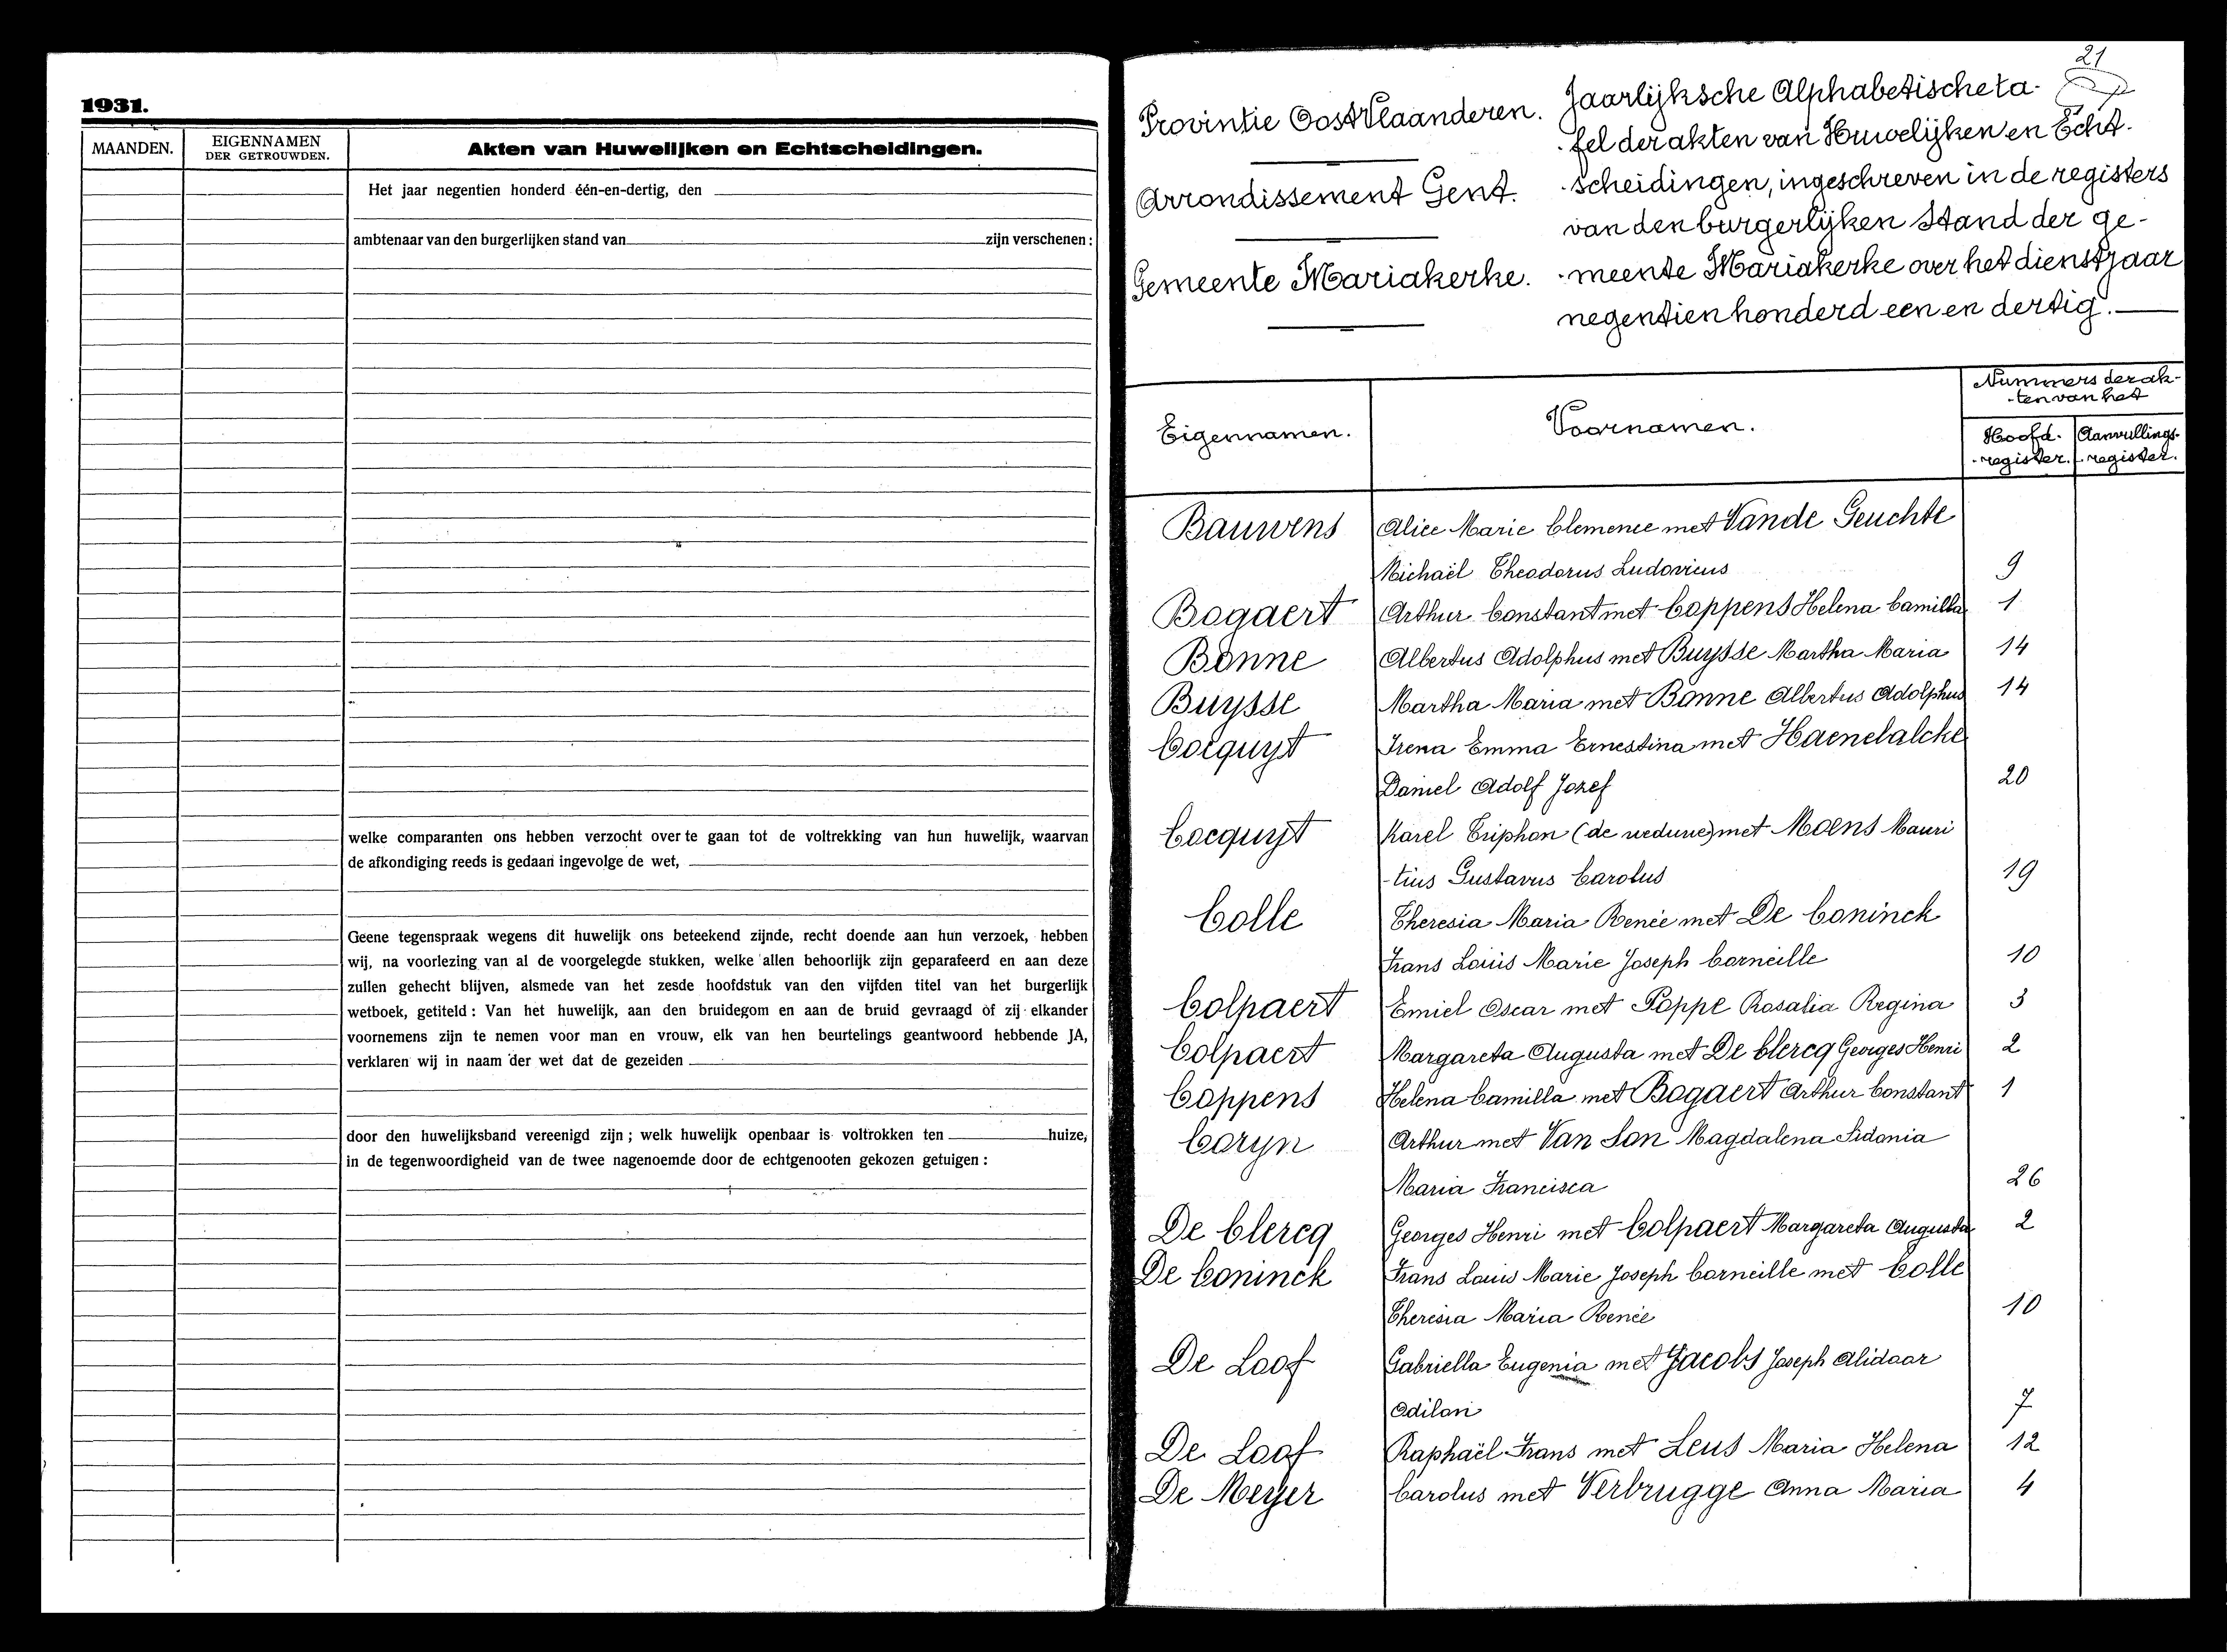 1931.
MAANDEN.
EIGENNAMEN
DER GETROUWDEN.
Akten van Huwelijken en Echtscheidingen.
Het jaar negentien honderd één-en-dertig, den
ambtenaar van den burgerlijken stand van zijn verschenen:
welke comparanten ons hebben verzocht over te gaan tot de voltrekking van hun huwelijk, waarvan
de afkondiging reeds is gedaan ingevolge de wet,
Geene tegenspraak wegens dit huwelijk ons beteekend zijnde, recht doende aan hun verzoek, hebben
wij, na voorlezing van al de voorgelegde stukken, welke allen behoorlijk zijn geparafeerd en aan deze
zullen gehecht blijven, alsmede van het zesde hoofdstuk van den vijfden titel van het burgerlijk
wetboek, getiteld: Van het huwelijk, aan den bruidegom en aan de bruid gevraagd of zij elkander
voornemens zijn te nemen voor man en vrouw, elk van hen beurtelings geantwoord hebbende JA,
verklaren wij in naam der wet dat de gezeiden
door den huwelijksband vereenigd zijn; welk huwelijk openbaar is voltrokken ten huize,
in de tegenwoordigheid van de twee nagenoemde door de echtgenooten gekozen getuigen:
21
Provintie OostVlaanderen.
Arrondissement Gent.
Gemeente Mariakerke.
Jaarlijksche Alphabetische ta-
-fel der akten van Huwelijken en Echt-
-scheidingen, ingeschreven in de registers
van den burgerlijken Stand der ge-
-meente Mariakerke over het dienstjaar
negentien honderd een en dertig.
Eigennamen.
Voornamen.
Nummers der ak-
-ten van het
Hoofd-
-register.
Aanvullings-
-register.
Bauwens Alice Marie Clemence met Vande Geuchte
Michaël Theodorus Ludovicus 9
Bogaert Arthur Constant met Coppens Helena Camilla 1
Bonne Albertus Adolphus met Buysse Martha Maria 14
Buysse Martha Maria met Bonne Albertus Adolphus 14
Cocquyt Irena Emma Ernestina met Haenebalcke
Daniel Adolf Jozef 20
Cocquyt Karel Triphon (de weduwe) met Moens Mauri
-tius Gustavus Carolus 19
Colle Theresia Maria Renée met De Coninck
Frans Louis Marie Joseph Corneille 10
Colpaert Emiel Oscar met Poppe Rosalia Regina 3
Colpaert Margareta Augusta met De Clercq Georges Henri 2
Coppens Helena Camilla met Bogaert Arthur Constant 1
Coryn Arthur met Van Son Magdalena Sidonia
Maria Francisca 26
De Clercq Georges Henri met Colpaert Margareta Augusta 2
De Coninck Frans Louis Marie Joseph Corneille met Colle
Theresia Maria Renée 10
De Loof Gabriella Eugenia met Jacobs Joseph Alidoor
Odilon 7
De Loof Raphaël Frans met Leus Maria Helena 12
De Meyer Carolus met Verbrugge Anna Maria 4